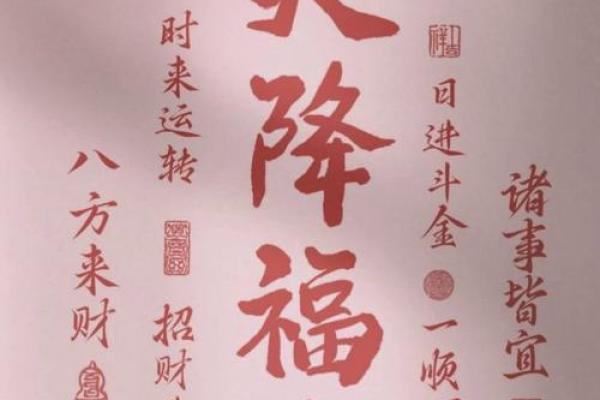 诸事皆宜
日进斗金
一顺
降福
时来运转
招财
八方来财